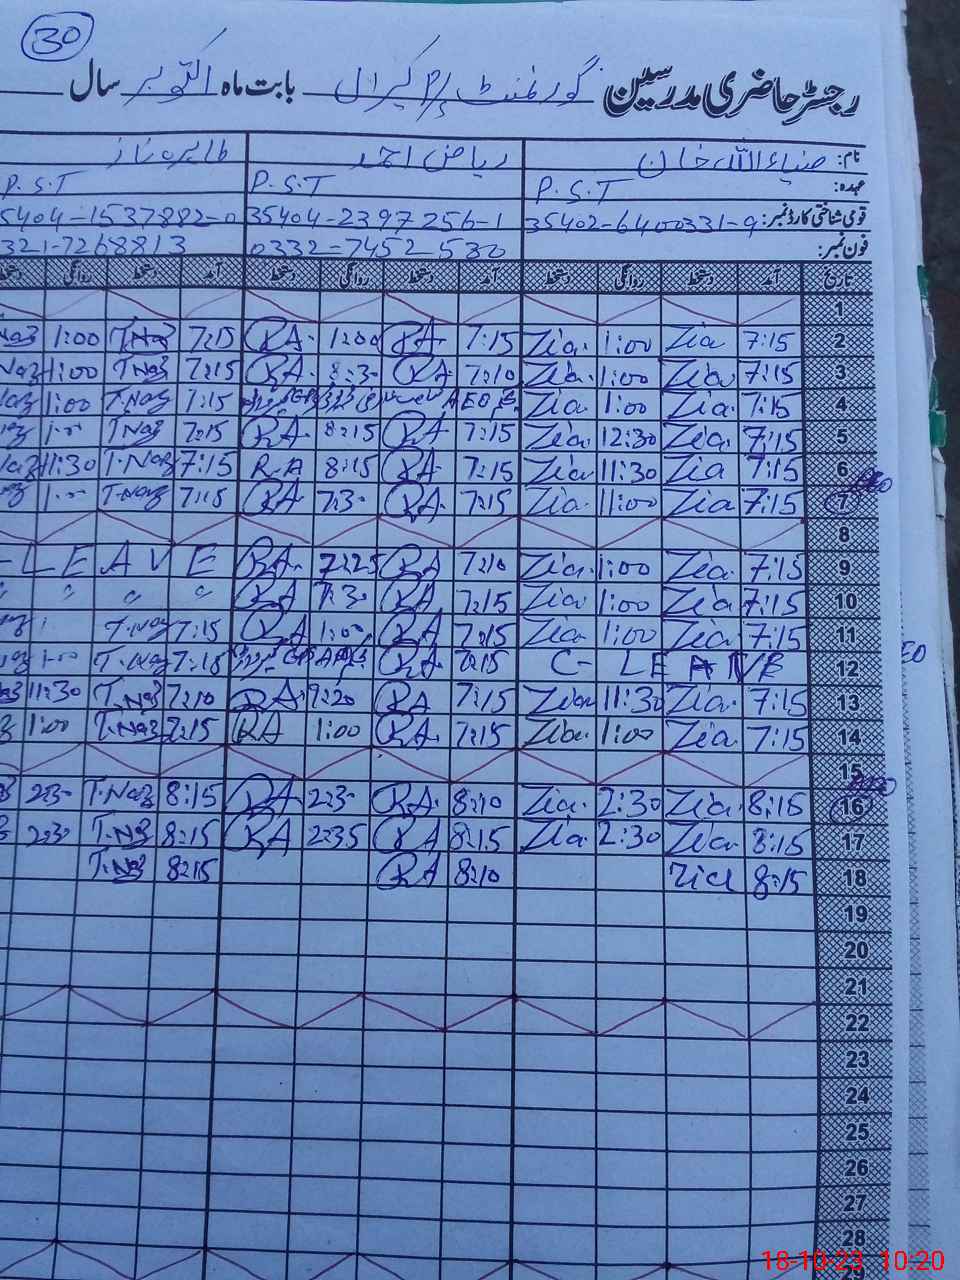 30
رجسٹر حاضری مدرسین گورنمنٹ پرائمری بابت ماہ اکتوبر سال
نام: ضیاءاللہ خان ریاض احمد طاہرہ ناز
عہدہ: P.S.T P.S.T P.S.T
قومی شناختی کارڈ نمبر: 35402-6400331-9 35404-2397256-1 35404-1537882-0
فون نمبر: 0332-7452580 321-7268813
تاریخ آمد دستخط روانگی دستخط آمد دستخط روانگی دستخط آمد دستخط روانگی دستخط
1
2 7:15 Zia 1:00 Zia 7:15 RA 1:00 RA 7:15 T.Naz 1:00 Naz
3 7:15 Zia 1:00 Zia 7:10 RA 8:30 RA 7:15 T.Naz 1:00 Naz
4 7:15 Zia 1:00 Zia AEO 7:15 T.Naz 1:00
5 7:15 Zia 12:30 Zia 7:15 RA 8:15 RA 7:15 T.Naz 1:00
6 7:15 Zia 11:30 Zia 7:15 RA 8:15 R.A 7:15 T.Naz 11:30
7 7:15 Zia 11:00 Zia 7:15 RA 7:30 RA 7:15 T.Naz 1:00
8
9 7:15 Zia 1:00 Zia 7:10 RA 7:25 RA LEAVE
10 7:15 Zia 1:00 Zia 7:15 RA 7:30 RA " " " "
11 7:15 Zia 1:00 Zia 7:15 RA 1:00 RA 7:15 T.Naz
12 C-LEAVE 7:15 RA 7:15 T.Naz 1:00
13 7:15 Zia 11:30 Zia 7:15 RA RA 7:10 T.Naz 11:30
14 7:15 Zia 1:00 Zia 7:15 RA 1:00 RA 7:15 T.Naz 1:00
15
16 8:15 Zia 2:30 Zia 8:10 RA 2:30 RA 8:15 T.Naz 2:30
17 8:15 Zia 2:30 Zia 8:15 RA 2:35 RA 8:15 T.Naz 2:30
18 8:15 Zia 8:10 RA 8:15 T.Naz
19
20
21
22
23
24
25
26
27
28
29
18-10-23 10:20